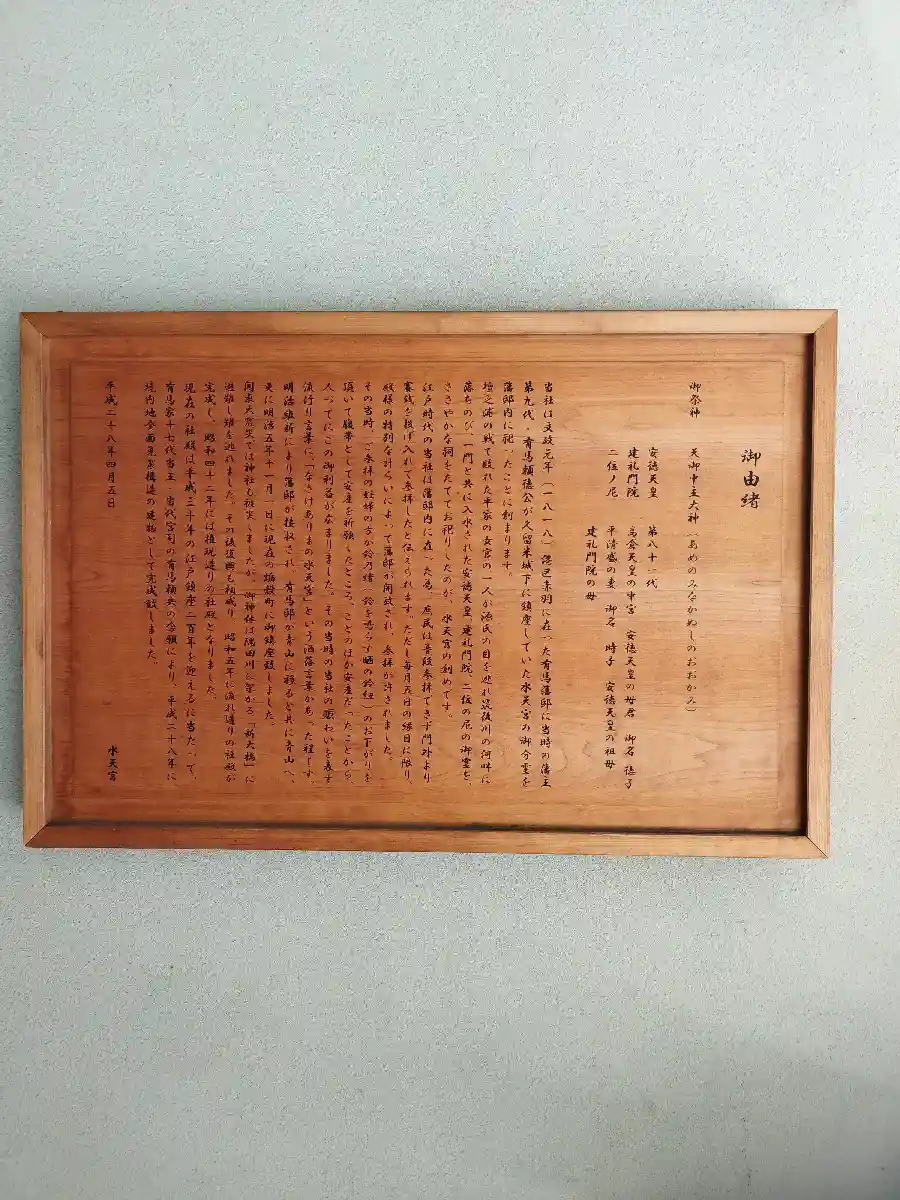 御由緒
御祭神　天御中主大神（あめのみなかぬしのおおかみ）
安徳天皇　第八十一代
建礼門院　高倉天皇の中宮　安徳天皇の母君　御名　徳子
二位ノ尼　平清盛の妻　御名　時子　安徳天皇の祖母
建礼門院の母
当社は文政元年（一八一八）港区赤羽に在った有馬藩邸に当時の藩主
第九代・有馬頼徳公が久留米城下に鎮座していた水天宮の御分霊を
藩邸内に祀ったことに創まります。
壇之浦の戦で敗れた平家の女官の一人が源氏の目を逃れ筑後川の河畔に
落ちのび、一門と共に入水された安徳天皇、建礼門院、二位の尼の御霊を、
ささやかな祠をたててお祀りしたのが、水天宮の創めです。
江戸時代の当社は藩邸内に在った為、庶民は普段参拝できず門外より
賽銭を投げ入れて参拝したと伝えられます。ただし毎月五日の縁日に限り、
殿様の特別な計らいによって藩邸が開放され、参拝が許されました。
その当時、ご参拝の妊婦の方が鈴乃緒（鈴を鳴らす晒の鈴紐）のお下がりを
頂いて腹帯として安産を祈願したところ、ことのほか安産だったことから、
人づてにこの御利益が広まりました。その当時の当社の賑わいを表す
流行り言葉に、「なさけありまの水天宮」という洒落言葉があった程です。
明治維新により藩邸が接収され、有馬邸が青山に移ると共に青山へ、
更に明治五年十一月一日に現在の蛎殻町に御鎮座致しました。
関東大震災では神社も被災しましたが、御神体は隅田川に架かる「新大橋」に
避難し難を逃れました。その後復興も相成り、昭和五年に流れ造りの社殿が
完成し、昭和四十二年には権現造りの社殿となりました。
現在の社殿は平成三十年の江戸鎮座二百年を迎えるに当たって、
有馬家十七代当主、当代宮司の有馬頼央の念願により、平成二十八年に
境内地全面免震構造の建物として完成致しました。
平成二十八年四月五日　水天宮